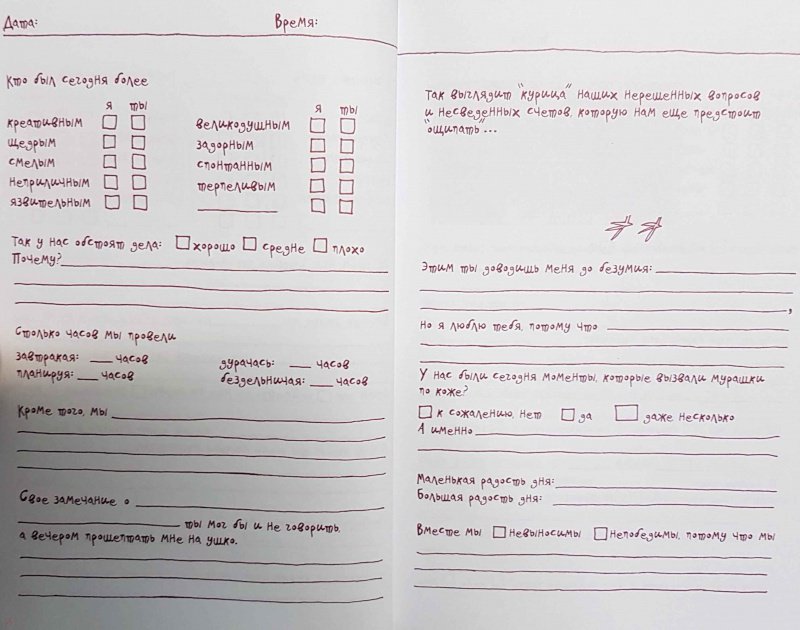 Дата: Время:
Кто был сегодня более
я ты
креативным
щедрым
смелым
неприличным
язвительным
я ты
великодушным
задорным
спонтанным
терпеливым
Так у нас обстоят дела: хорошо средне плохо
Почему?
Столько часов мы провели
завтракая: часов
планируя: часов
дурачась: часов
бездельничая: часов
Кроме того, мы
Свое замечание о
ты мог бы и не говорить,
а вечером прошептать мне на ушко.
Так выглядит "курица" наших нерешенных вопросов
и несведенных счетов, которую нам еще предстоит
"ощипать"...
Этим ты доводишь меня до безумия:
,
но я люблю тебя, потому что
У нас были сегодня моменты, которые вызвали мурашки
по коже?
к сожалению, нет да даже несколько
А именно
Маленькая радость дня:
Большая радость дня:
Вместе мы невыносимы непобедимы, потому что мы